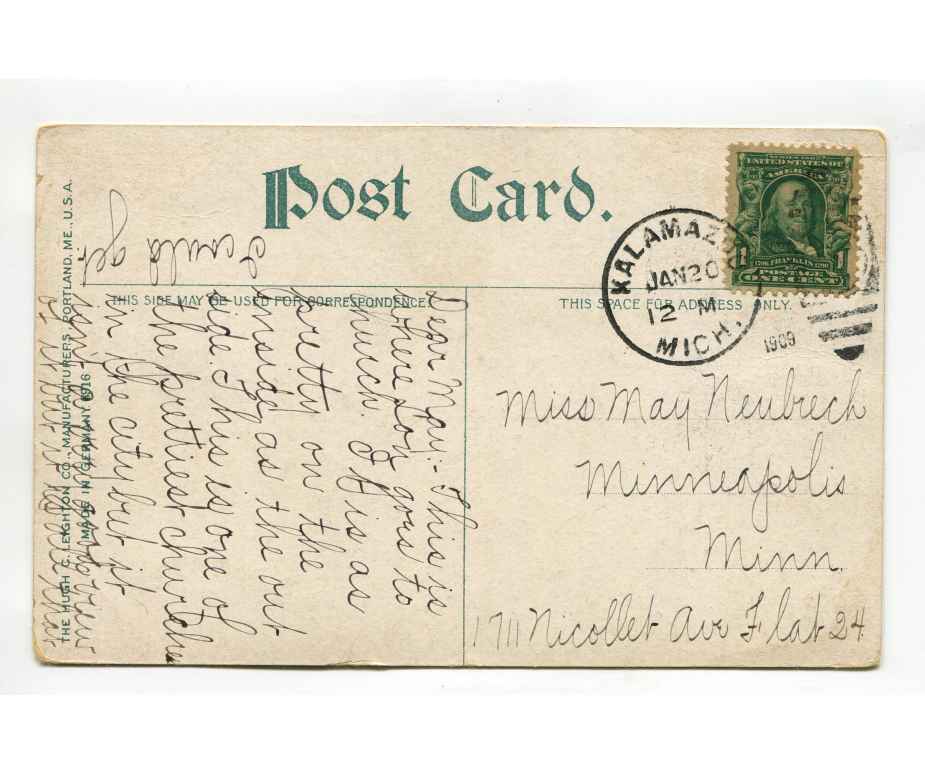 Post Card.
THIS SIDE MAY BE USED FOR CORRESPONDENCE
THIS SPACE FOR ADDRESS ONLY.
THE HUGH C. LEIGHTON CO., MANUFACTURERS, PORTLAND, ME., U.S.A.
MADE IN GERMANY 1916
SERIES 1902
UNITED STATES OF
AMERICA
1 1
FRANKLIN
POSTAGE
ONE CENT
KALAMAZ
JAN 20
12 M
MICH.
1909
Miss May Neubrech
Minneapolis
Minn.
1711 Nicollet Ave Flat 24
Dear May:- This is
where Lon goes to
church. It is as
pretty on the
inside as the out
side This is one of
the prettiest churches
in the city but it
I could get